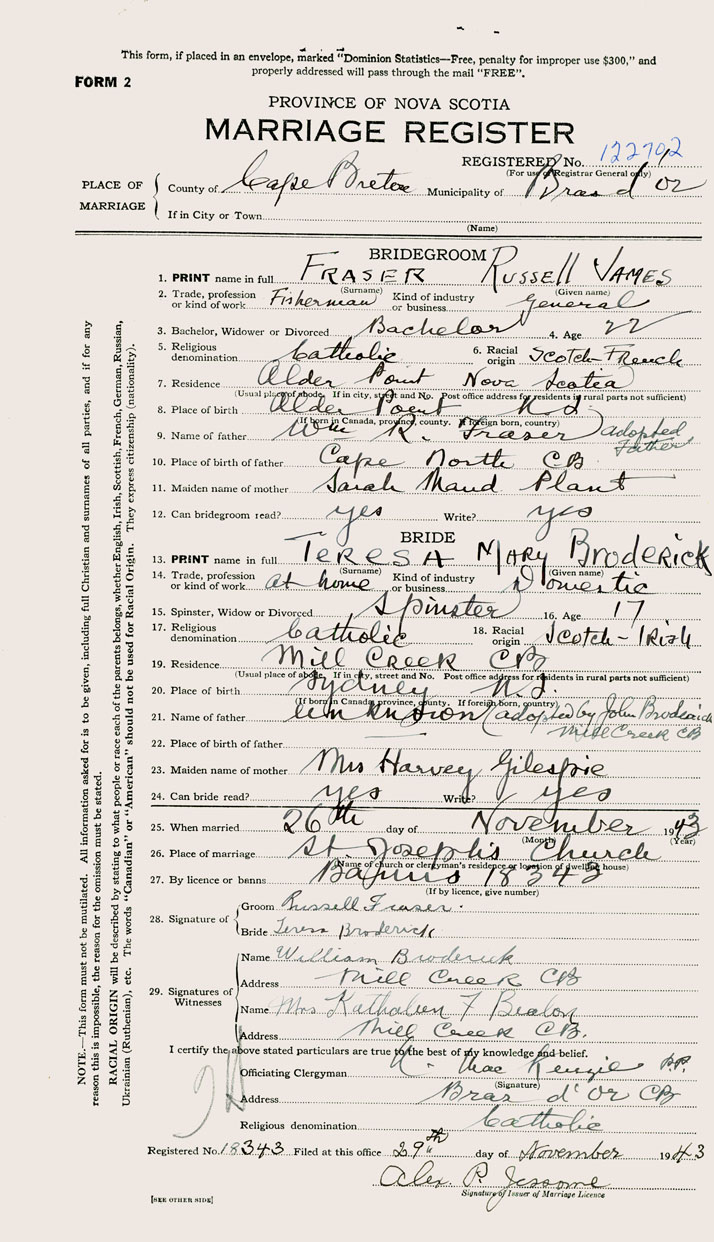 This form, if placed in an envelope, marked "Dominion Statistics—Free, penalty for improper use $300," and
properly addressed will pass through the mail "FREE".
FORM 2
PROVINCE OF NOVA SCOTIA
MARRIAGE REGISTER
REGISTERED No. 122702
(For use of Registrar General only)
PLACE OF MARRIAGE
County of Cape Breton Municipality of Bras d'or
If in City or Town
(Name)
BRIDEGROOM
1. PRINT name in full FRASER RUSSELL JAMES
(Surname) (Given name)
2. Trade, profession or kind of work Fisherman Kind of industry or business General
3. Bachelor, Widower or Divorced Bachelor 4. Age 22
5. Religious denomination Catholic 6. Racial origin Scotch-French
7. Residence Alder Point Nova Scotia
(Usual place of abode. If in city, street and No. Post office address for residents in rural parts not sufficient)
8. Place of birth Alder Point N.S.
(If born in Canada, province, county. If foreign born, country)
9. Name of father Wm R. Fraser (adopted Father)
10. Place of birth of father Cape North CB
11. Maiden name of mother Sarah Maud Plant
12. Can bridegroom read? yes Write? yes
BRIDE
13. PRINT name in full TERESA MARY BRODERICK
(Surname) (Given name)
14. Trade, profession or kind of work at home Kind of industry or business Domestic
15. Spinster, Widow or Divorced Spinster 16. Age 17
17. Religious denomination Catholic 18. Racial origin Scotch-Irish
19. Residence Mill Creek CB
(Usual place of abode. If in city, street and No. Post office address for residents in rural parts not sufficient)
20. Place of birth Sydney N.S.
(If born in Canada, province, county. If foreign born, country)
21. Name of father unknown (adopted by John Broderick
Mill Creek CB
22. Place of birth of father
23. Maiden name of mother Mrs Harvey Gilespie
24. Can bride read? yes Write? yes
25. When married 26th day of November 1943
(Month) (Year)
26. Place of marriage St Joseph's Church
(Name of church or clergyman's residence or location of dwelling house)
27. By licence or banns 18343
(If by licence, give number)
28. Signature of
Groom Russell Fraser.
Bride Teresa Broderick
29. Signatures of Witnesses
Name William Broderick
Address Mill Creek CB
Name Mrs Kathaleen F
Address Mill Creek CB.
I certify the above stated particulars are true to the best of my knowledge and belief.
Officiating Clergyman MacKenzie P.P.
(Signature)
Address Bras d'Or CB
Religious denomination Catholic
Registered No. 18343 Filed at this office 29th day of November 1943
Alex. P. Jessome
Signature of Issuer of Marriage Licence
[SEE OTHER SIDE]
NOTE.—This form must not be mutilated. All information asked for is to be given, including full Christian and surnames of all parties, and if for any
reason this is impossible, the reason for the omission must be stated.
RACIAL ORIGIN will be described by stating to what people or race each of the parents belongs, whether English, Irish, Scottish, French, German, Russian,
Ukrainian (Ruthenian), etc. The words "Canadian" or "American" should not be used for Racial Origin. They express citizenship (nationality).